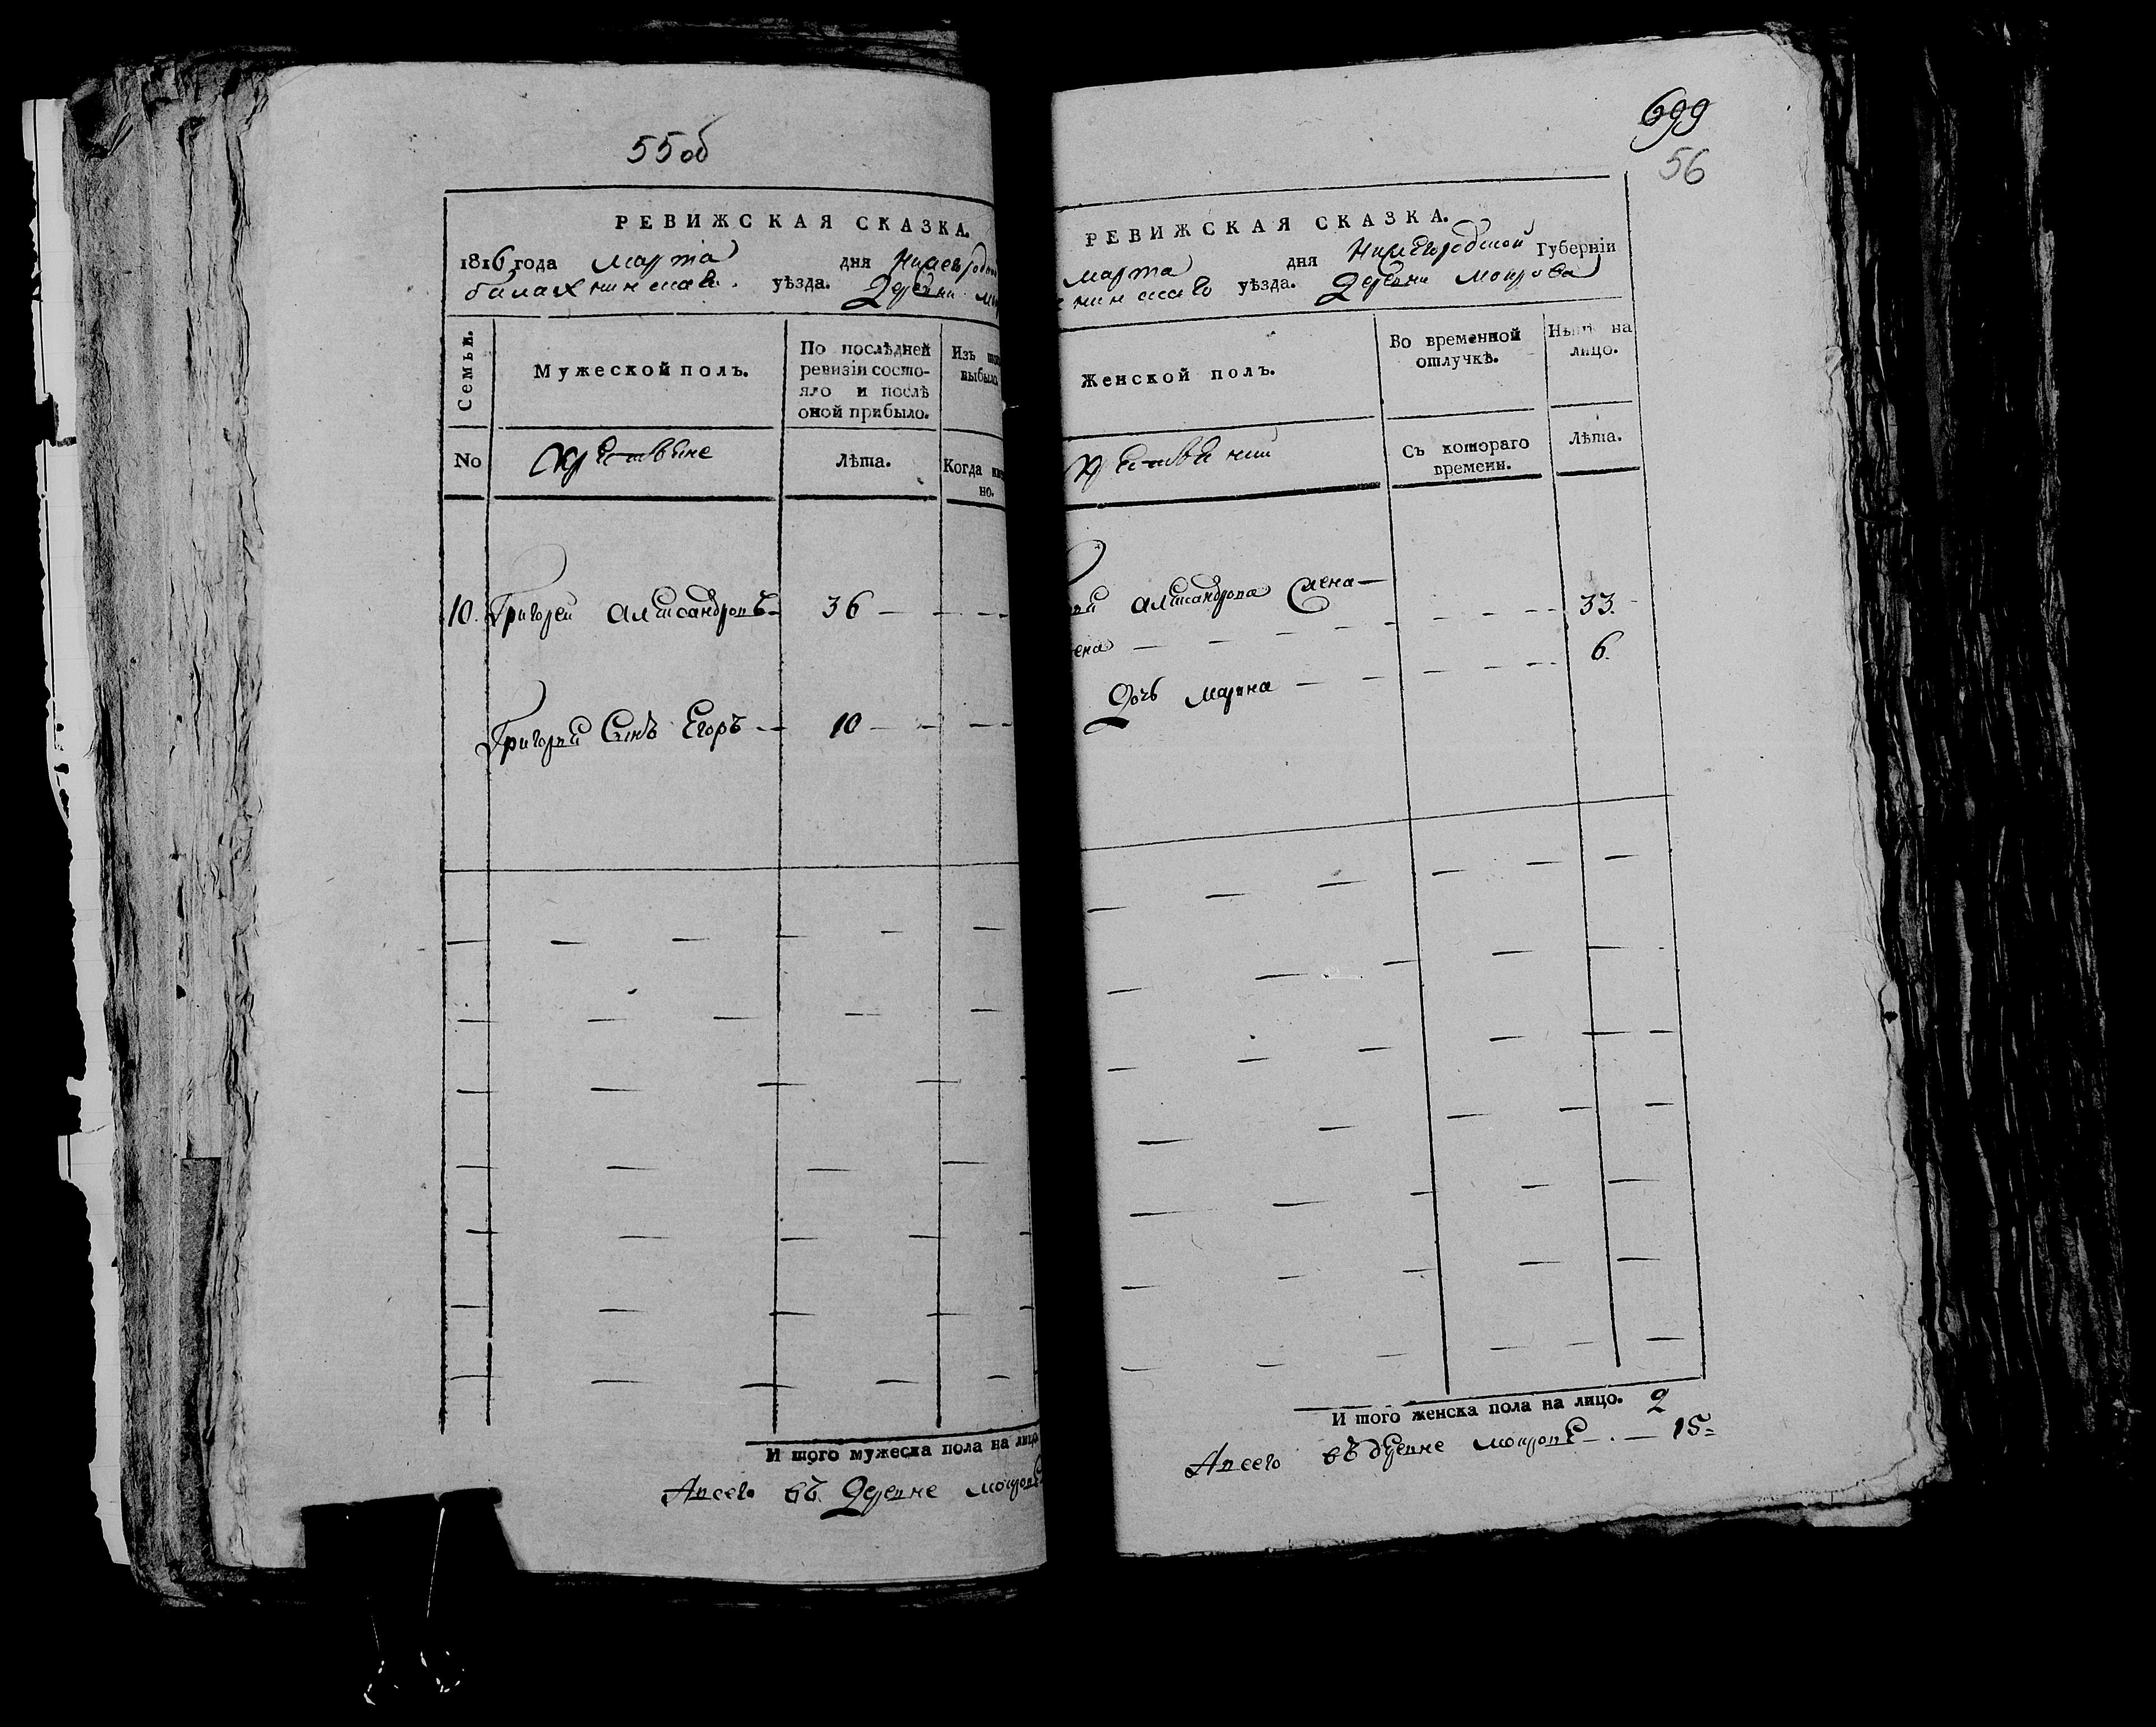 55об
РЕВИЖСКАЯ СКАЗКА.
1816 года марта дня
балахнинскаго уѣзда. Деревни
Семьи.
Мужеской полъ.
По послѣдней
ревизіи состо-
яло и послѣ
оной прибыло.
Изъ
выбыло
No
Лѣта.
Когда
но.
10. Григорей Александровъ 36
Григорья Сынъ Егоръ 10
И того мужеска пола на лицо
А всего въ Деревне
699
56
РЕВИЖСКАЯ СКАЗКА.
марта дня Нижегородской Губерніи
уѣзда. Деревни Мокрова
Женской полъ.
Во временной
отлучкѣ.
Нынѣ на
лицо.
Съ котораго
времени.
Лѣта.
Александрова
33.
6.
Дочь марина
И того женска пола на лицо. 2
А всего въ деревне мокрове 15